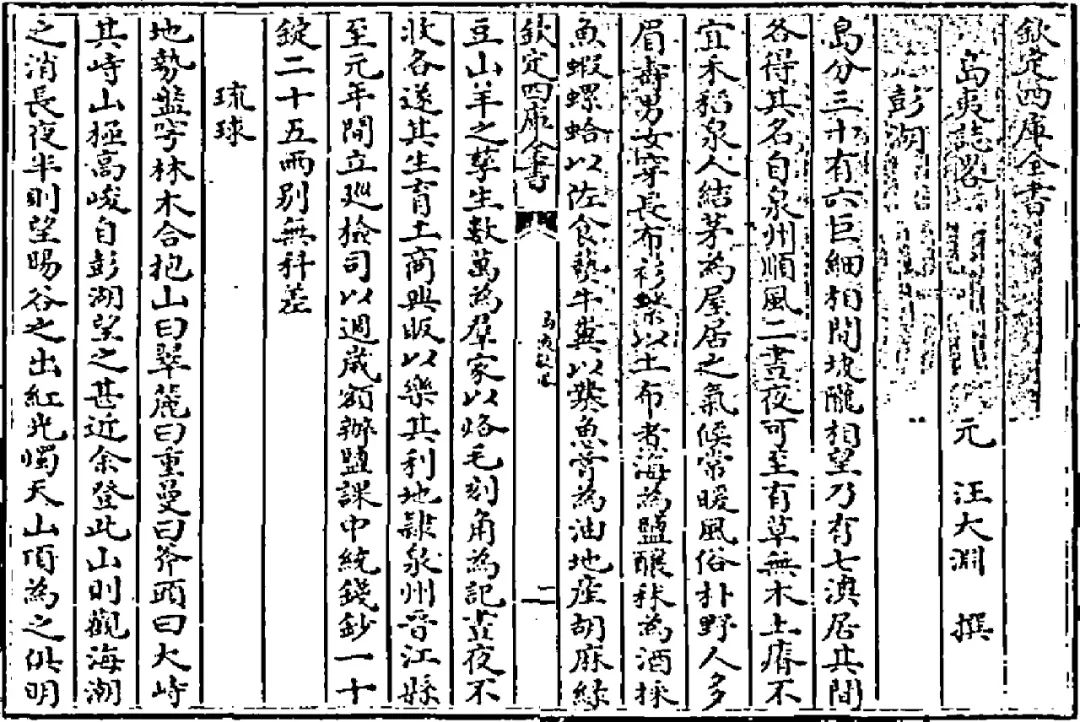 欽定四庫全書
島夷誌畧 元 汪大淵 撰
彭湖
島分三十有六巨細相間坡隴相望乃有七澳居其間
各得其名自泉州順風二晝夜可至有草無木土瘠不
宜禾稻泉人結茅為屋居之氣候常暖風俗朴野人多
眉壽男女穿長布衫繫以土布煮海為鹽釀秫為酒採
魚蝦螺蛤以佐食爇牛糞以爨魚膏為油地產胡麻緑
欽定四庫全書
島夷誌畧
二
豆山羊之孳生數萬為羣家以烙毛刻角為記晝夜不
收各遂其生育土商興販以樂其利地隸泉州晉江縣
至元年間立廵檢司以週歲額辦鹽課中統錢鈔一十
錠二十五兩别無科差
琉球
地勢盤穹林木合抱山曰翠麓曰重曼曰斧頭曰大峙
其峙山極高峻自彭湖望之甚近余登此山則觀海潮
之消長夜半則望暘谷之出紅光燭天山頂為之俱明